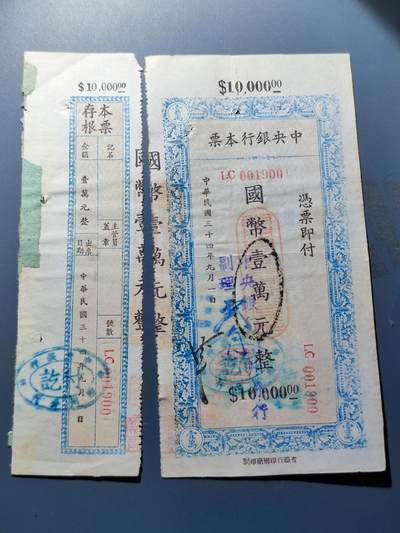 $10,000.00
本票
存根
記名
金額
壹萬元整
主管員
蓋章
出票
日期
號數
中華民國三十四年九月一日
LC 001900
國幣壹萬元整
訖
$10,000.00
中央銀行本票
LC 001900
憑票即付
國幣壹萬元整
中華民國三十四年九月一日
副理
中央
LC 001900
$10,000.00
行